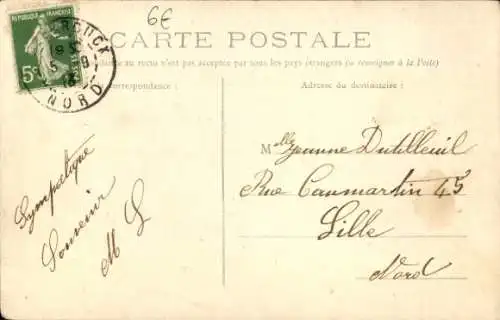 6€
CARTE POSTALE
au recto n'est pas acceptée par tous les pays étrangers (se renseigner à la Poste)
Correspondance :
Adresse du destinataire :
RÉPUBLIQUE FRANÇAISE
5c
NORD
Sympathique
Souvenir
M L
Melle Jeanne Dutilleul
Rue Caumartin 45
Lille
Nord